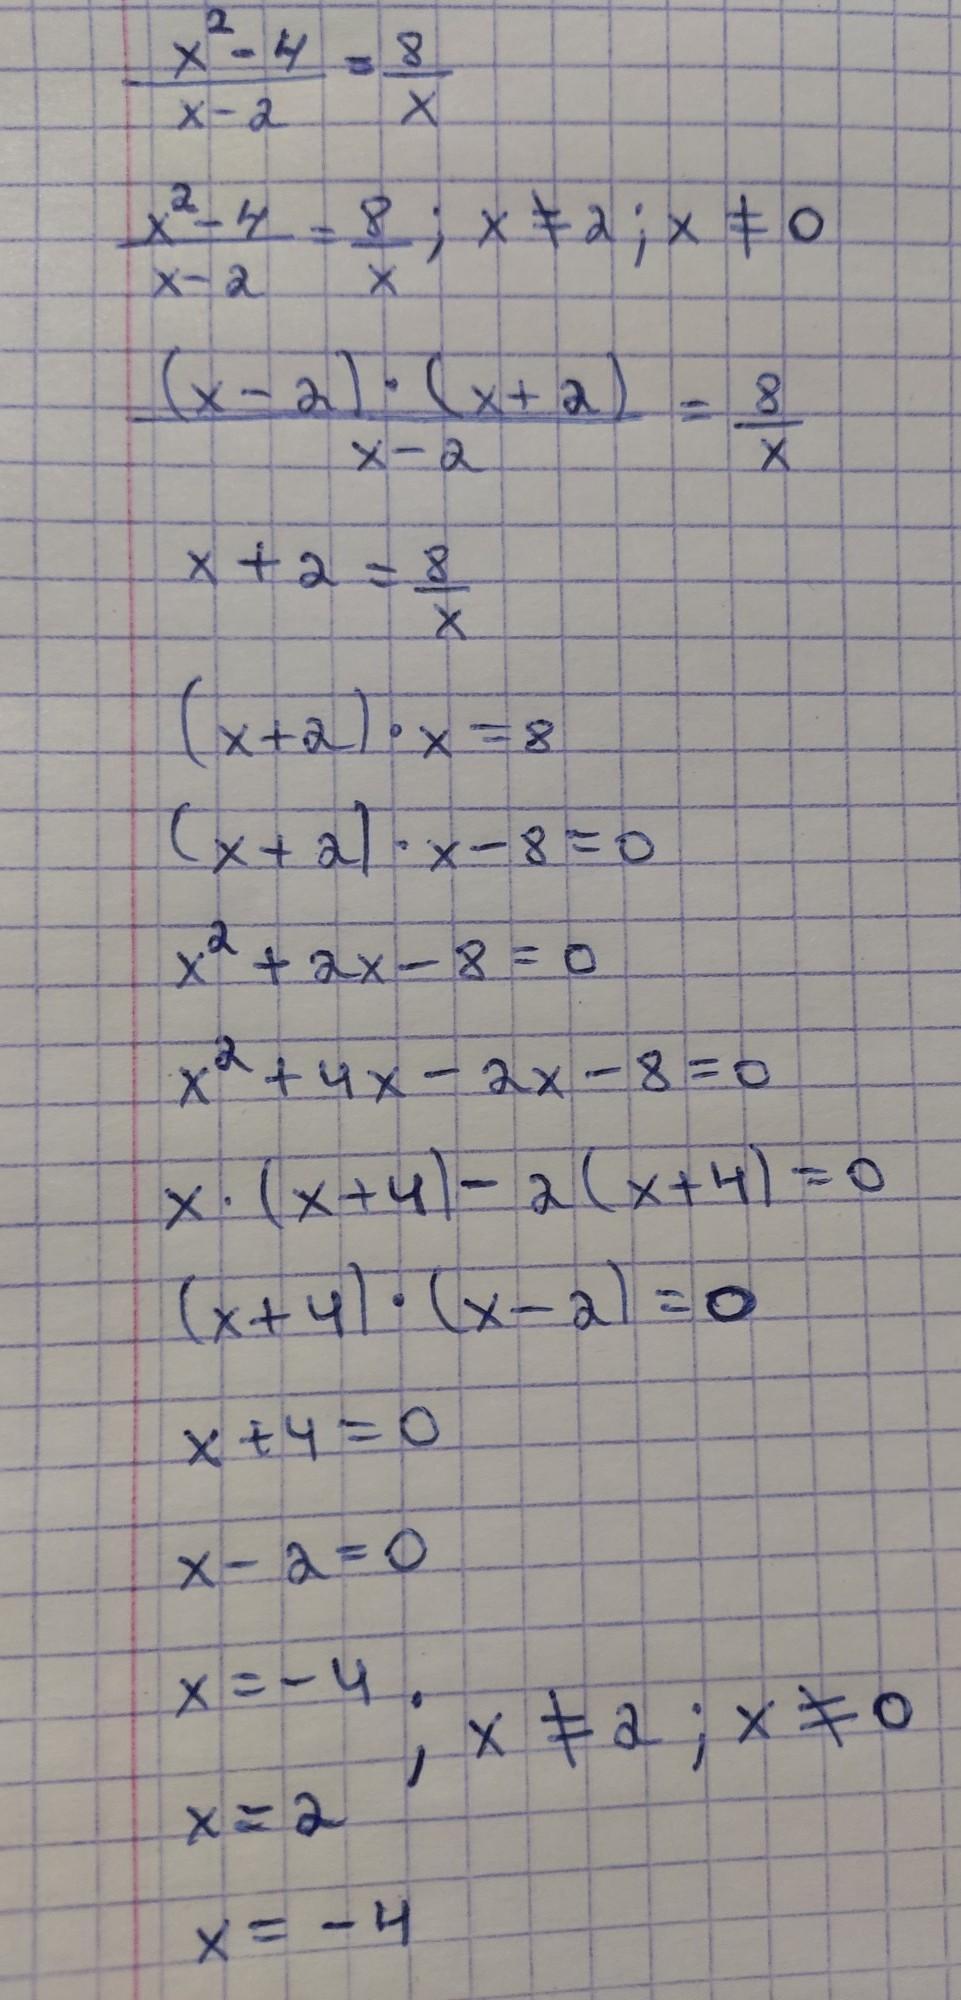 x²-4/x-2 = 8/x
x²-4/x-2 = 8/x; x≠2; x≠0
(x-2)·(x+2)/x-2 = 8/x
x+2 = 8/x
(x+2)·x=8
(x+2)·x-8=0
x²+2x-8=0
x²+4x-2x-8=0
x·(x+4)-2(x+4)=0
(x+4)·(x-2)=0
x+4=0
x-2=0
x=-4
; x≠2; x≠0
x=2
x=-4